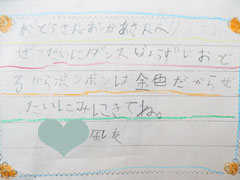 おとうさんおかあさんへ
ぜったいにダンスじょうずにおど
るからポンポンは金色だからぜ
たいにみにきてね。